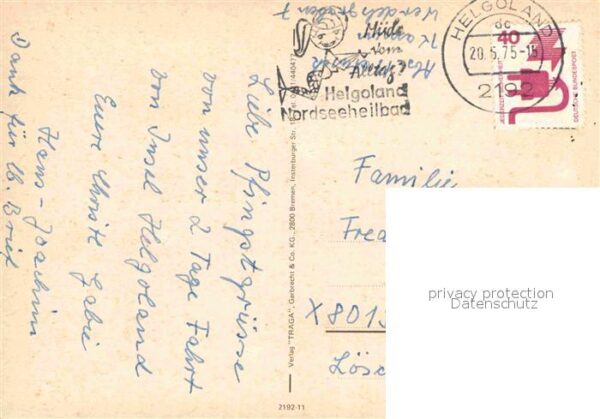 Liebe Pfingstgrüsse
von unser 2 Tage Fahrt
von Insel Helgoland
Eure Christl Gabi
Hans-Joachim
Dank für lb. Brief
Müde
vom
Alltag?
Helgoland
Nordseeheilbad
HELGOLAND
dc
20.5.75-15
2192
40
DEUTSCHE BUNDESPOST
Familie
Fred
X801
Lös
privacy protection
Datenschutz
Verlag "TRAGA", Garbrecht & Co. KG., 2800 Bremen, Insterburger Str.
2192-11